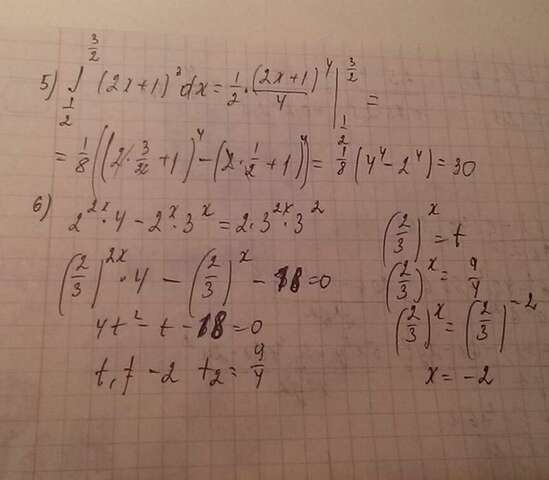 5) ∫_{1/2}^{3/2} (2x+1)^3 dx = 1/2 · (2x+1)^4/4 |_{1/2}^{3/2} =
= 1/8 ((2 · 3/2 + 1)^4 - (2 · 1/2 + 1)^4) = 1/8 (4^4 - 2^4) = 30
6) 2^{2x} · 4 - 2^x · 3^x = 2 · 3^{2x} · 3^2
(2/3)^{2x} · 4 - (2/3)^x - 18 = 0
4t^2 - t - 18 = 0
t, t - 2 t_2 = 9/4
(2/3)^x = t
(2/3)^x = 9/4
(2/3)^x = (2/3)^{-2}
x = -2